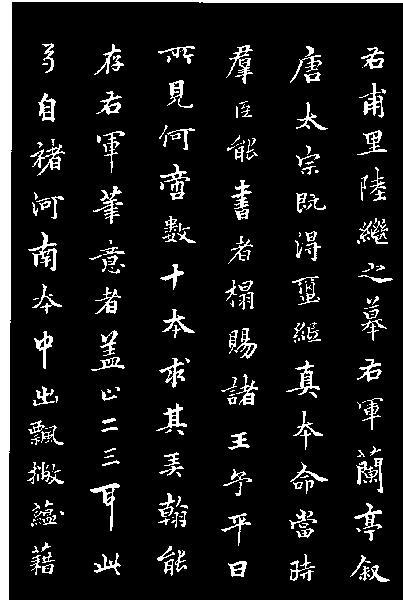 右甫里陸繼之摹右軍蘭亭叙
唐太宗既得繭紙真本命當時
羣臣能書者搨賜諸王予平日
所見何啻數十本求其弄翰能
存右軍筆意者蓋止二三耳此
卷自褚河南本中出飄撇蘊藉